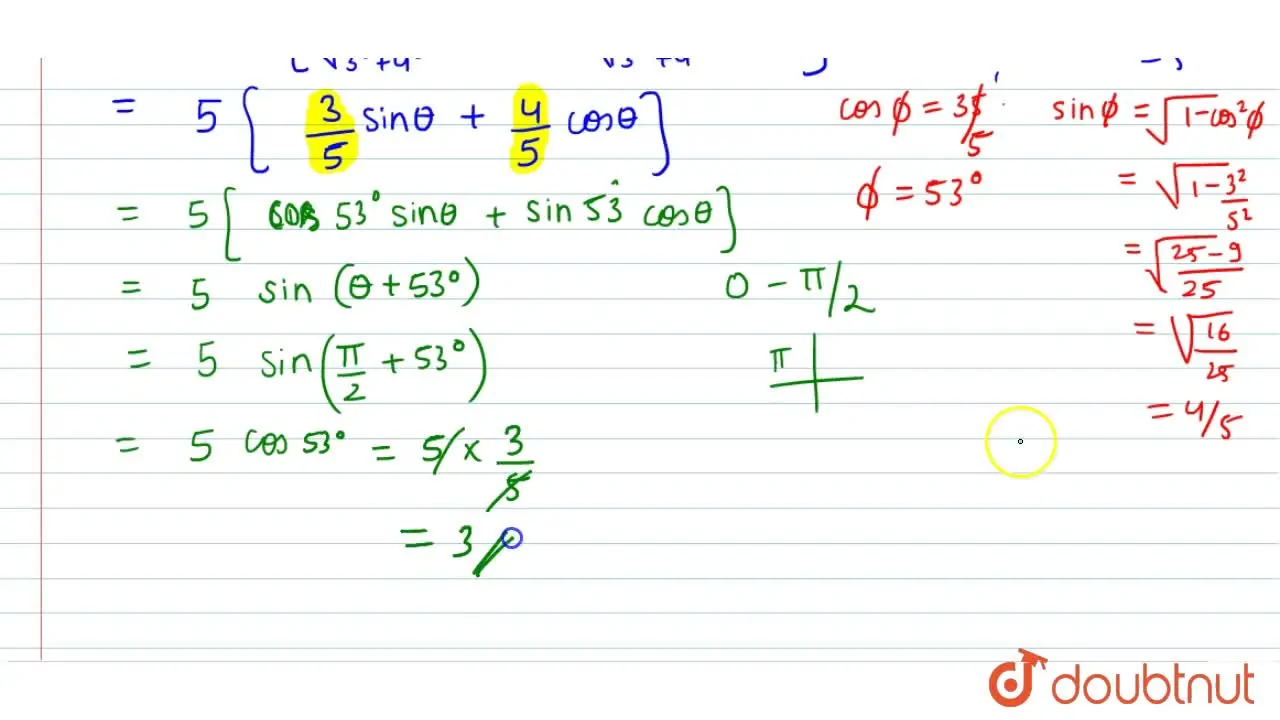 = 5 [ 3/5 sinθ + 4/5 cosθ ]
= 5 [ cos 53° sinθ + sin 53° cosθ ]
= 5 sin (θ + 53°)
= 5 sin (π/2 + 53°)
= 5 cos 53° = 5 × 3/5
= 3
0 – π/2
π
cos ϕ = 3/5
ϕ = 53°
sin ϕ = √1-cos²ϕ
= √1-3²/5²
= √25-9/25
= √16/25
= 4/5
doubtnut